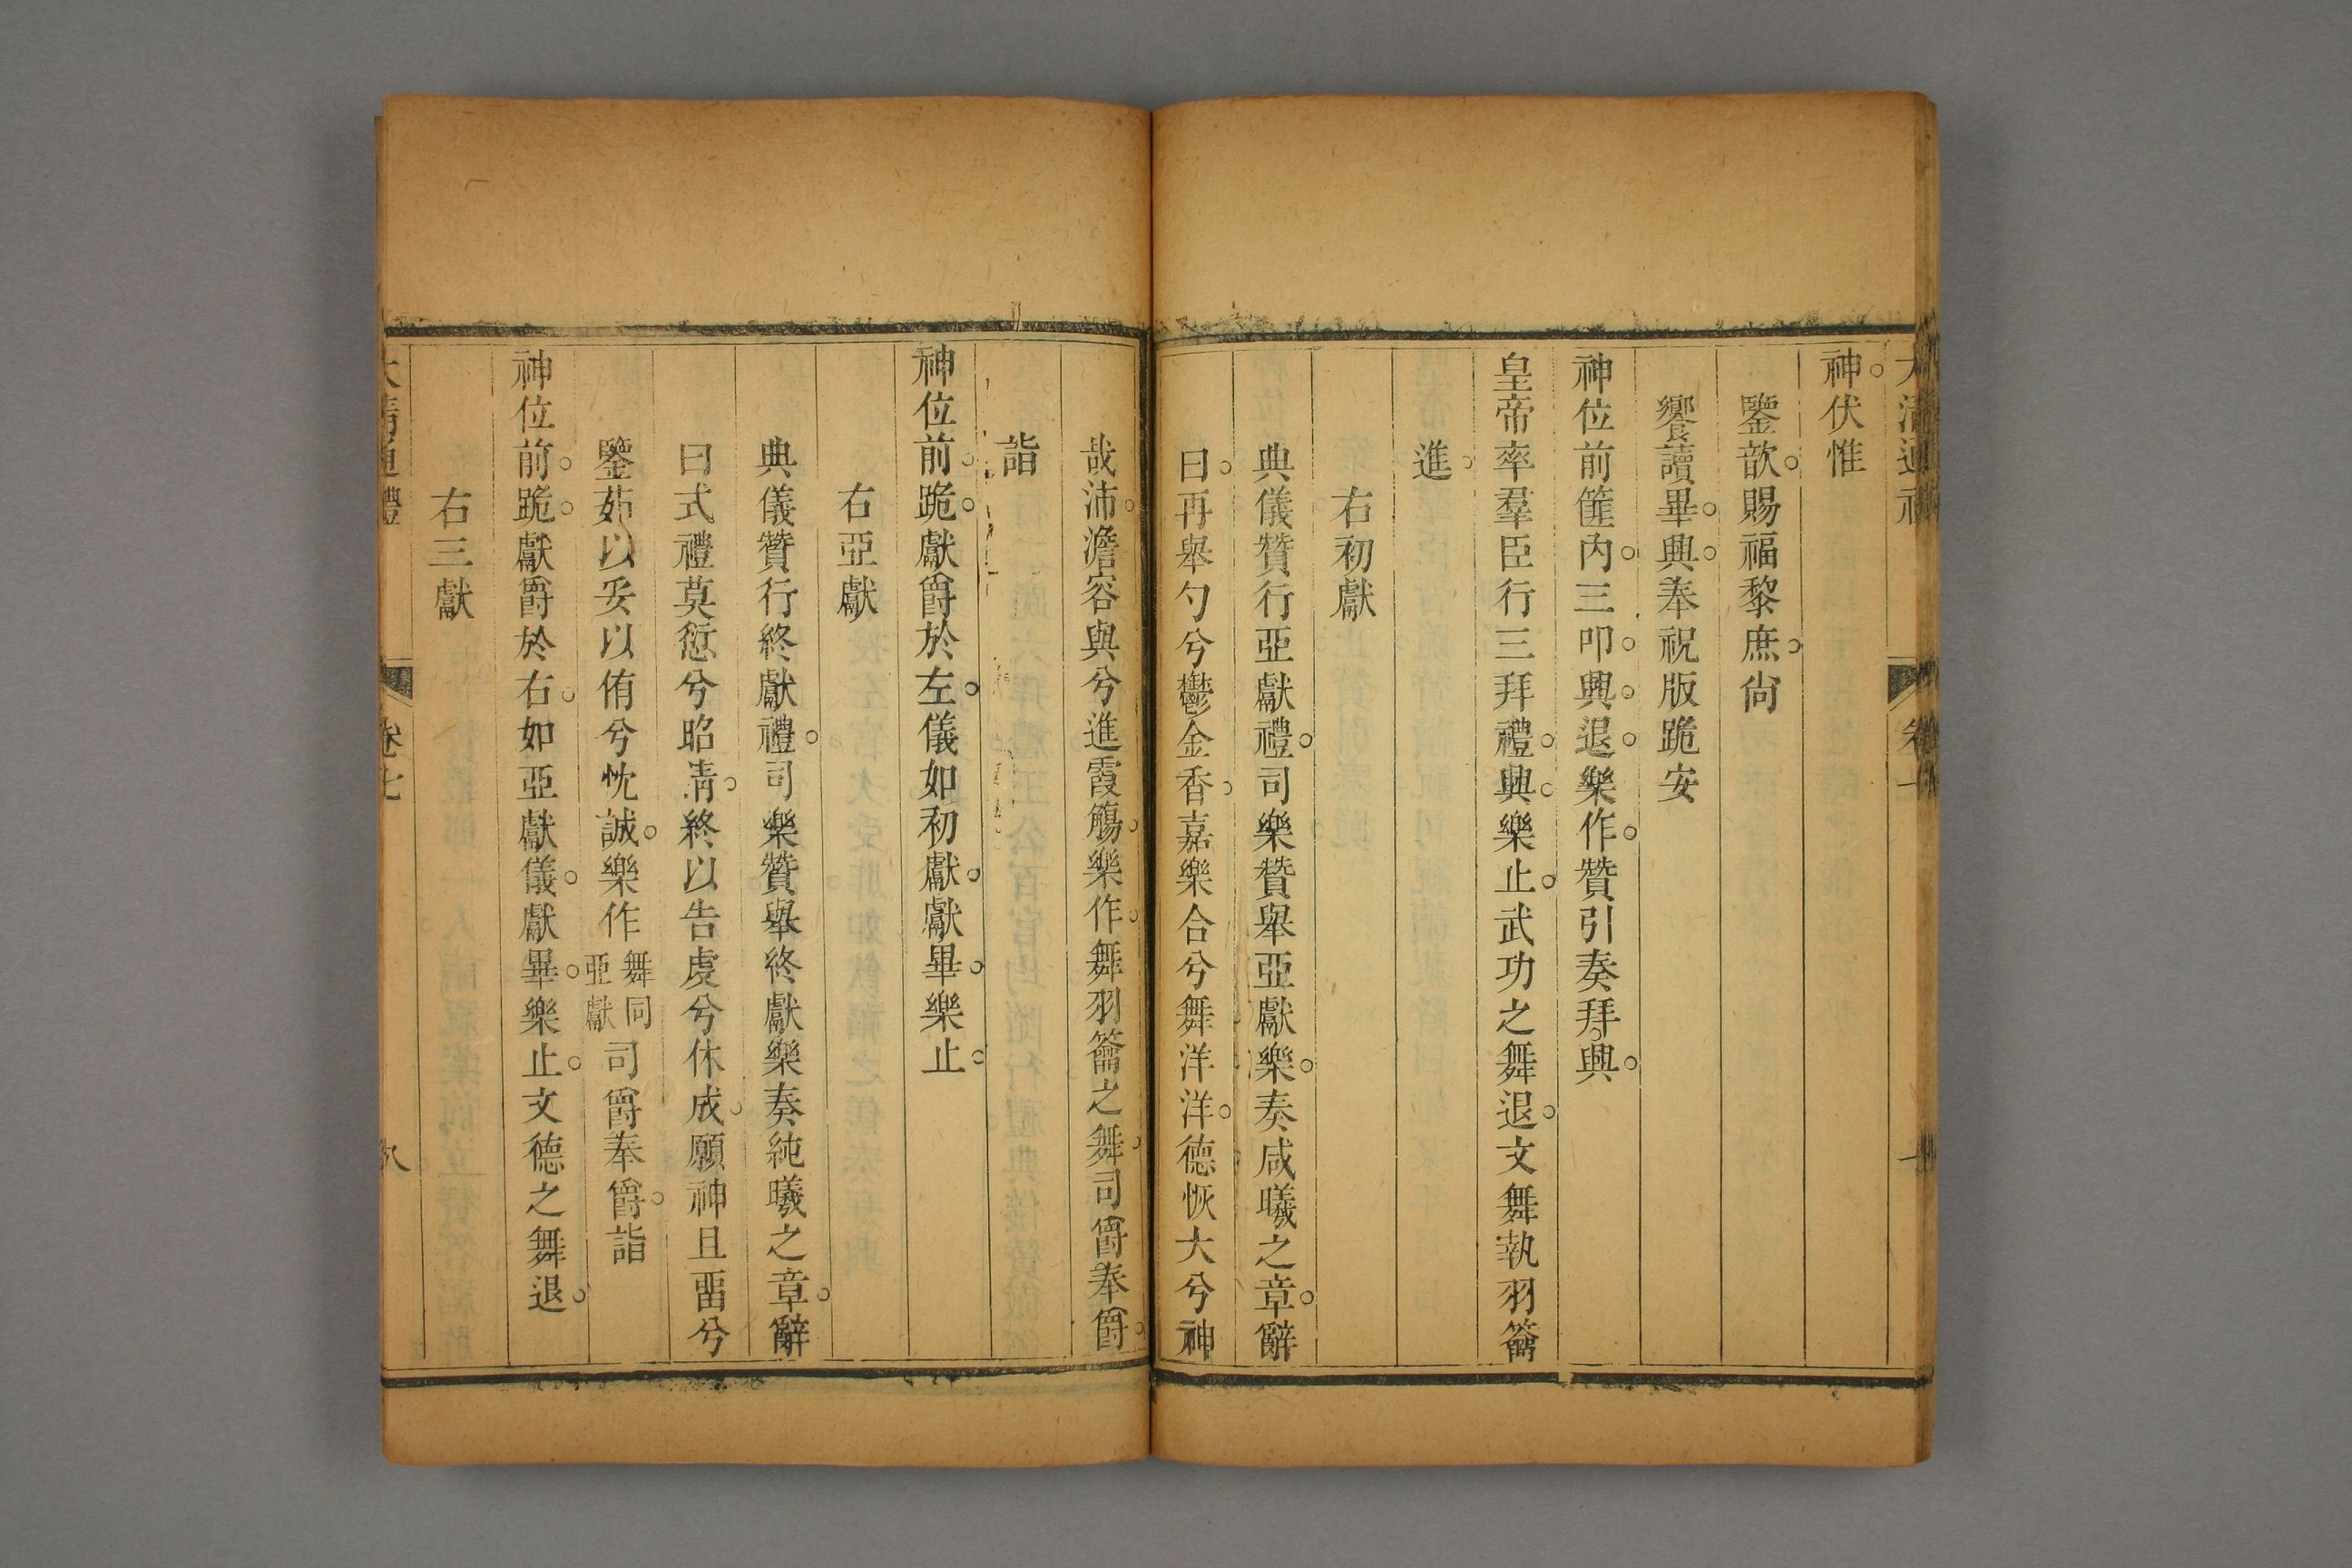 神伏惟
鑒歆賜福黎庶尙
饗讀畢興奉祝版跪安
神位前篚內三叩興退樂作贊引奏拜興
皇帝率羣臣行三拜禮興樂止武功之舞退文舞執羽籥
進
右初獻
典儀贊行亞獻禮司樂贊舉亞獻樂奏咸曦之章辭
曰再舉勺兮鬱金香嘉樂合兮舞洋洋德恢大兮神
哉沛澹容與兮進霞觴樂作舞羽籥之舞司爵奉爵
詣
神位前跪獻爵於左儀如初獻獻畢樂止
右亞獻
典儀贊行終獻禮司樂贊舉終獻樂奏純曦之章辭
曰式禮莫愆兮昭清終以告虔兮休成願神且畱兮
鑒茹以妥以侑兮忱誠樂作舞同亞獻司爵奉爵詣
神位前跪獻爵於右如亞獻儀獻畢樂止文德之舞退
右三獻
大清通禮 卷七 八